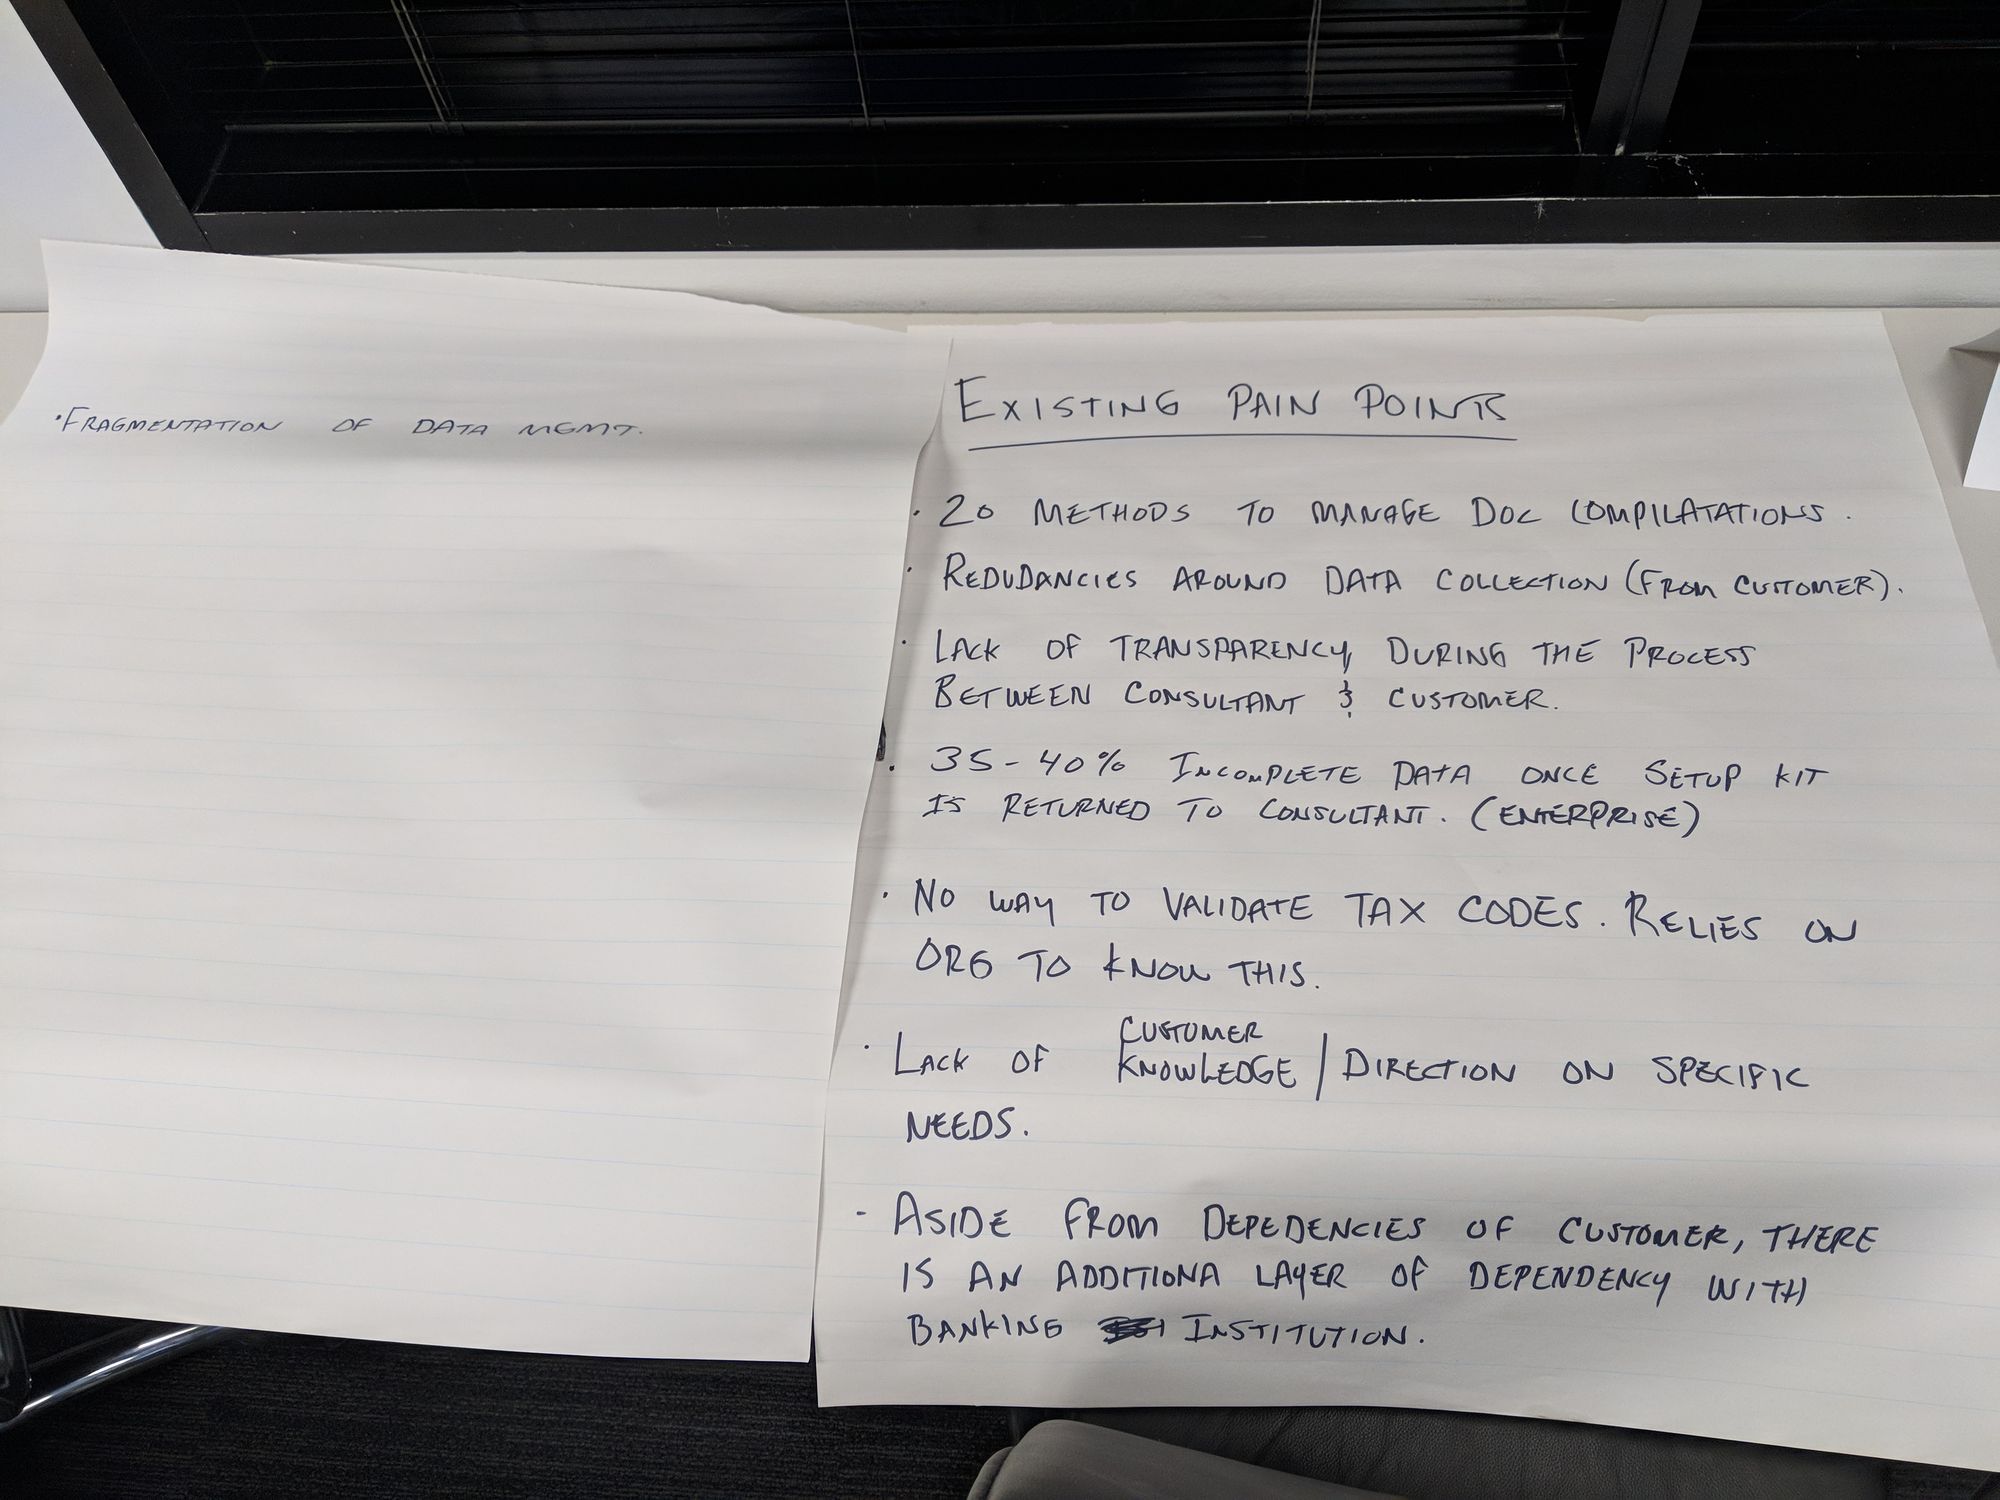 · FRAGMENTATION OF DATA MGMT.
EXISTING PAIN POINTS
· 20 METHODS TO MANAGE DOC COMPILATATIONS.
· REDUDANCIES AROUND DATA COLLECTION (FROM CUSTOMER).
· LACK OF TRANSPARENCY DURING THE PROCESS
BETWEEN CONSULTANT & CUSTOMER.
· 35-40% INCOMPLETE DATA ONCE SETUP KIT
IS RETURNED TO CONSULTANT. (ENTERPRISE)
· NO WAY TO VALIDATE TAX CODES. RELIES ON
ORG TO KNOW THIS.
· LACK OF CUSTOMER KNOWLEDGE / DIRECTION ON SPECIFIC
NEEDS.
- ASIDE FROM DEPEDENCIES OF CUSTOMER, THERE
IS AN ADDITIONA LAYER OF DEPENDENCY WITH
BANKING INSTITUTION.